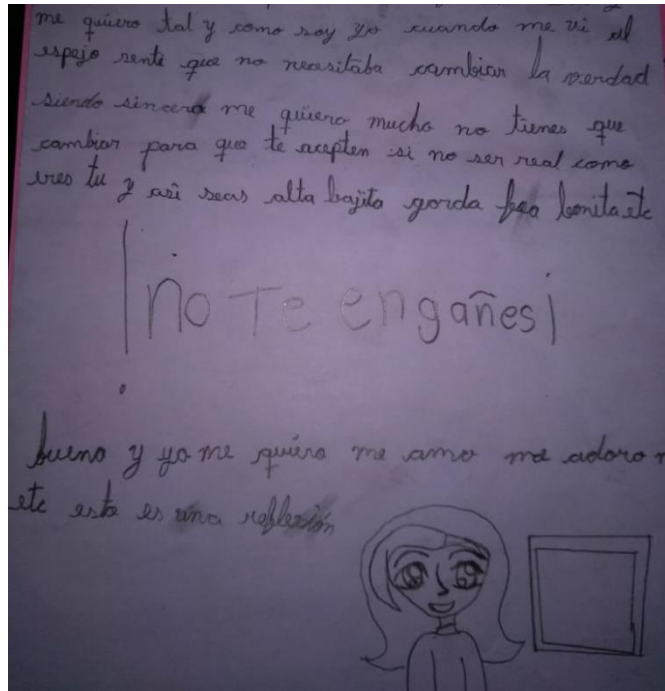 me quiero tal y como soy yo cuando me vi al
espejo senti que no necesitaba cambiar la verdad
siendo sincera me quiero mucho no tienes que
cambiar para que te acepten si no ser real como
eres tu y asi seas alta bajita gorda fea bonita etc
¡no Te engañes!
bueno y yo me quiero me amo me adoro
etc esta es una reflexión